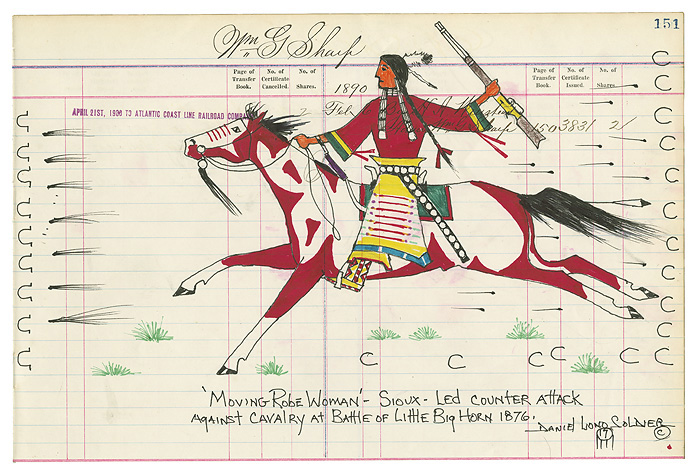 151
Wm G Sharp
Page of Transfer Book. No. of Certificate Cancelled. No. of Shares. Page of Transfer Book. No. of Certificate Issued. No. of Shares.
1890
APRIL 21ST, 1900 TO ATLANTIC COAST LINE RAILROAD
Feb 150 3831 21
'MOVING ROBE WOMAN' - SIOUX - LED COUNTER ATTACK
AGAINST CAVALRY AT BATTLE OF LITTLE BIG HORN 1876.
DANIEL LONG SOLDIER ©